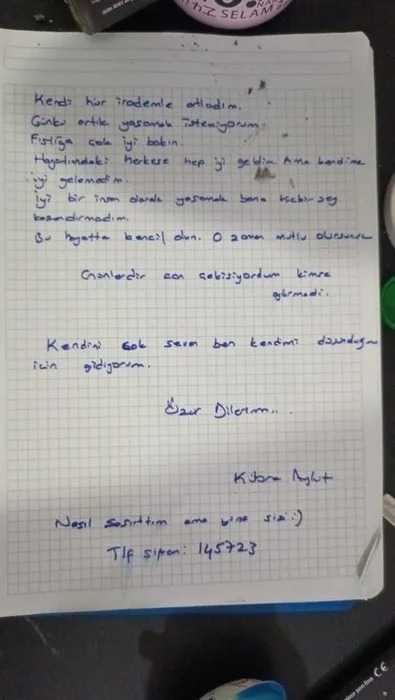 SELAM
Kendi hür irademle atladım.
Çünkü artık yaşamak istemiyorum.
Fıstığa çok iyi bakın.
Hayatımdaki herkese hep iyi geldim. Ama kendime
iyi gelemedim.
İyi bir insan olarak yaşamak bana hiçbir şey
kazandırmadım.
Bu hayatta bencil olun. O zaman mutlu olursunuz
can çekişiyordum kimse
görmedi.
Kendini çok seven ben kendimi
için gidiyorum.
Özür Dilerim...
Kübra Aykut
Nasıl şaşırttım ama yine sizi :)
Tlf şifrem: 145723
CE